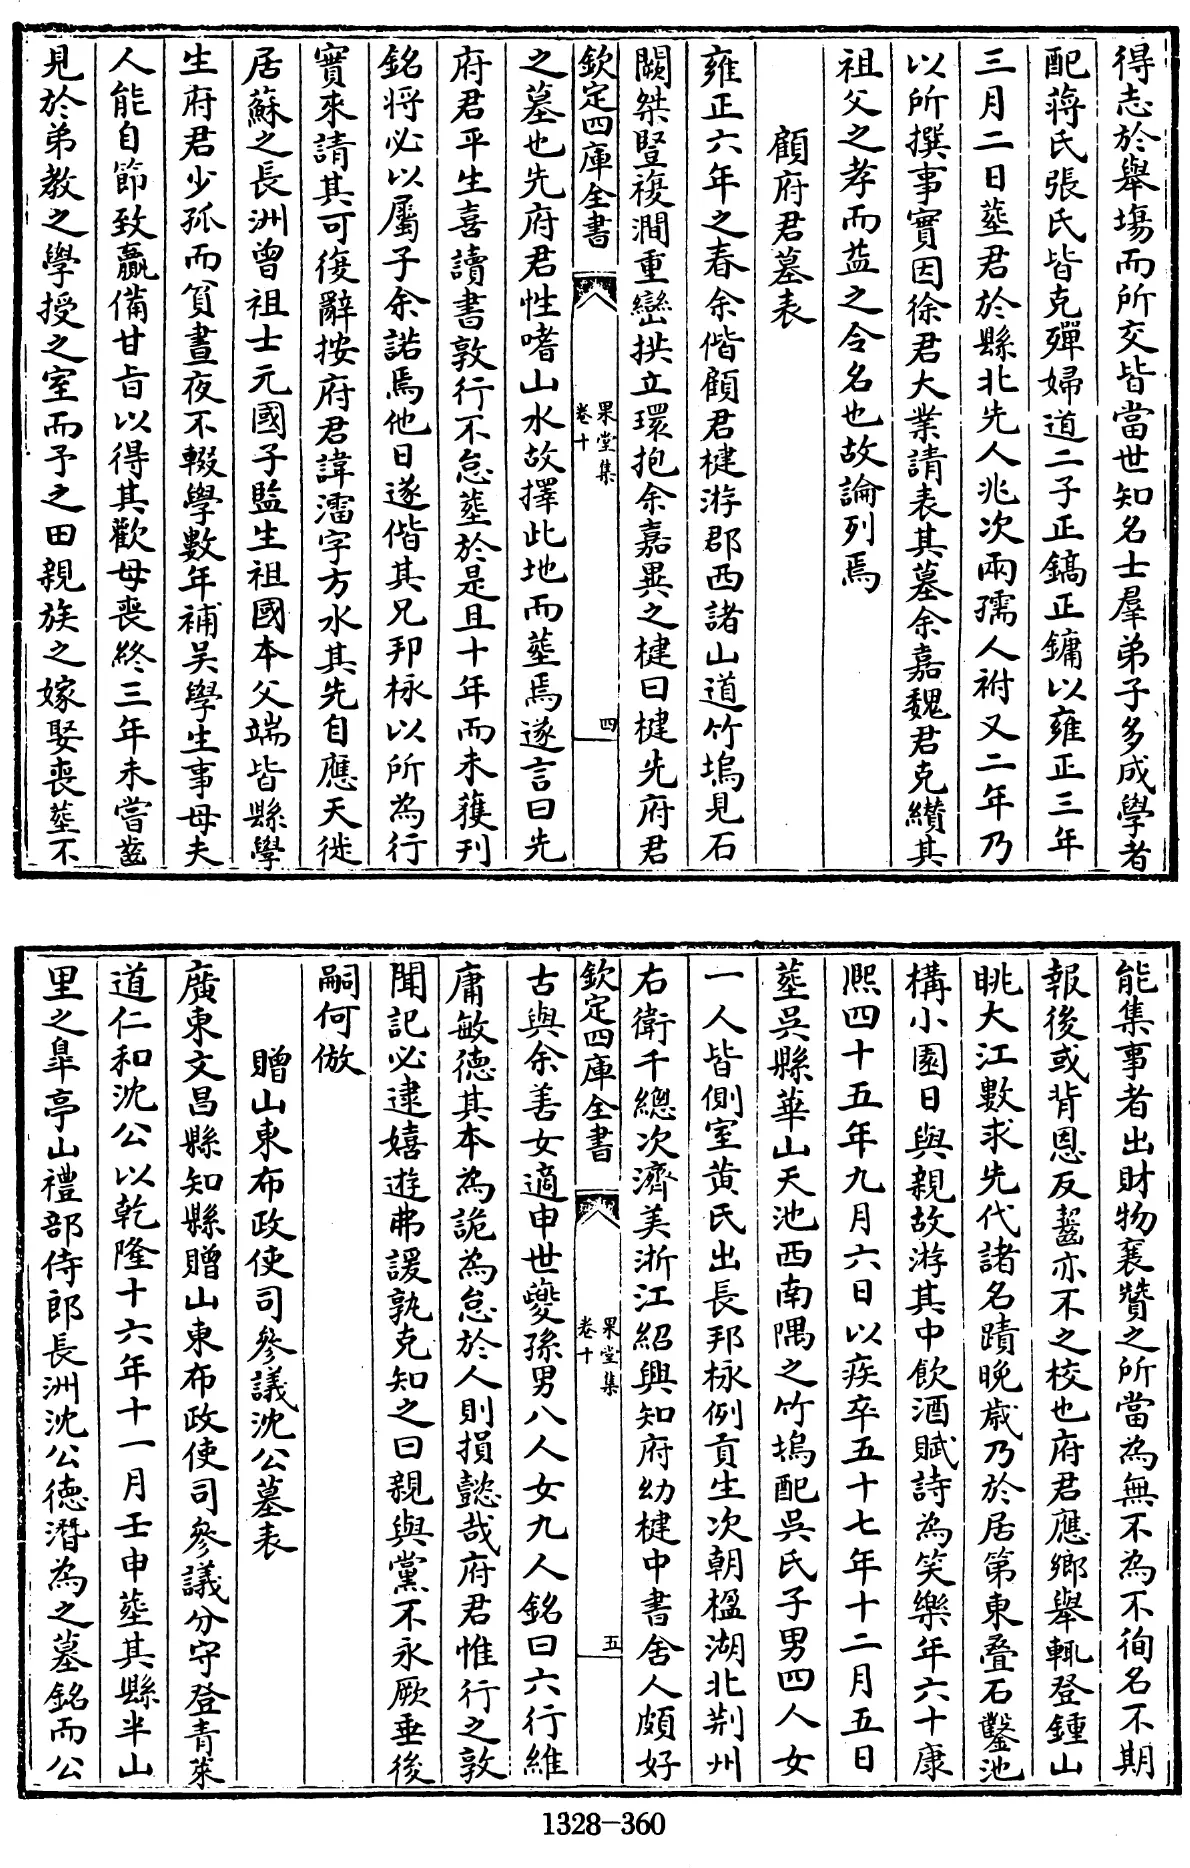 得志於舉塲而所交皆當世知名士羣弟子多成學者
配蔣氏張氏皆克殫婦道二子正鎬正鏞以雍正三年
三月二日塟君於縣北先人兆次兩孺人祔又二年乃
以所撰事實因徐君大業請表其墓余嘉魏君克纘其
祖父之孝而益之令名也故論列焉
顧府君墓表
雍正六年之春余偕顧君楗游郡西諸山道竹塢見石
闕桀豎複澗重巒拱立環抱余嘉異之楗曰楗先府君
欽定四庫全書
果堂集
卷十
四
之墓也先府君性嗜山水故擇此地而塟焉遂言曰先
府君平生喜讀書敦行不怠塟於是且十年而未獲刊
銘将必以屬子余諾焉他日遂偕其兄邦栐以所為行
實來請其可復辭按府君諱澑字方水其先自應天徙
居蘇之長洲曾祖士元國子監生祖國本父端皆縣學
生府君少孤而貧晝夜不輟學數年補吴學生事母夫
人能自節致羸備甘旨以得其歡母喪終三年未嘗齒
見於弟教之學授之室而予之田親族之嫁娶喪塟不
能集事者出財物襄贊之所當為無不為不徇名不期
報後或背恩反齮亦不之校也府君應鄉舉輒登鍾山
眺大江數求先代諸名蹟晚歲乃於居第東疊石鑿池
構小園日與親故游其中飲酒賦詩為笑樂年六十康
熙四十五年九月六日以疾卒五十七年十二月五日
塟吳縣華山天池西南隅之竹塢配吳氏子男四人女
一人皆側室黄氏出長邦栐例貢生次朝楹湖北荆州
右衛千總次濟美浙江紹興知府幼楗中書舍人頗好
欽定四庫全書
果堂集
卷十
五
古與余善女適申世夔孫男八人女九人銘曰六行維
庸敏德其本為詭為怠於人則損懿哉府君惟行之敦
聞記必逮嬉遊弗諼孰克知之曰親與黨不永厥垂後
嗣何倣
贈山東布政使司參議沈公墓表
廣東文昌縣知縣贈山東布政使司參議分守登青萊
道仁和沈公以乾隆十六年十一月壬申塟其縣半山
里之臯亭山禮部侍郎長洲沈公德潛為之墓銘而公
1328-360